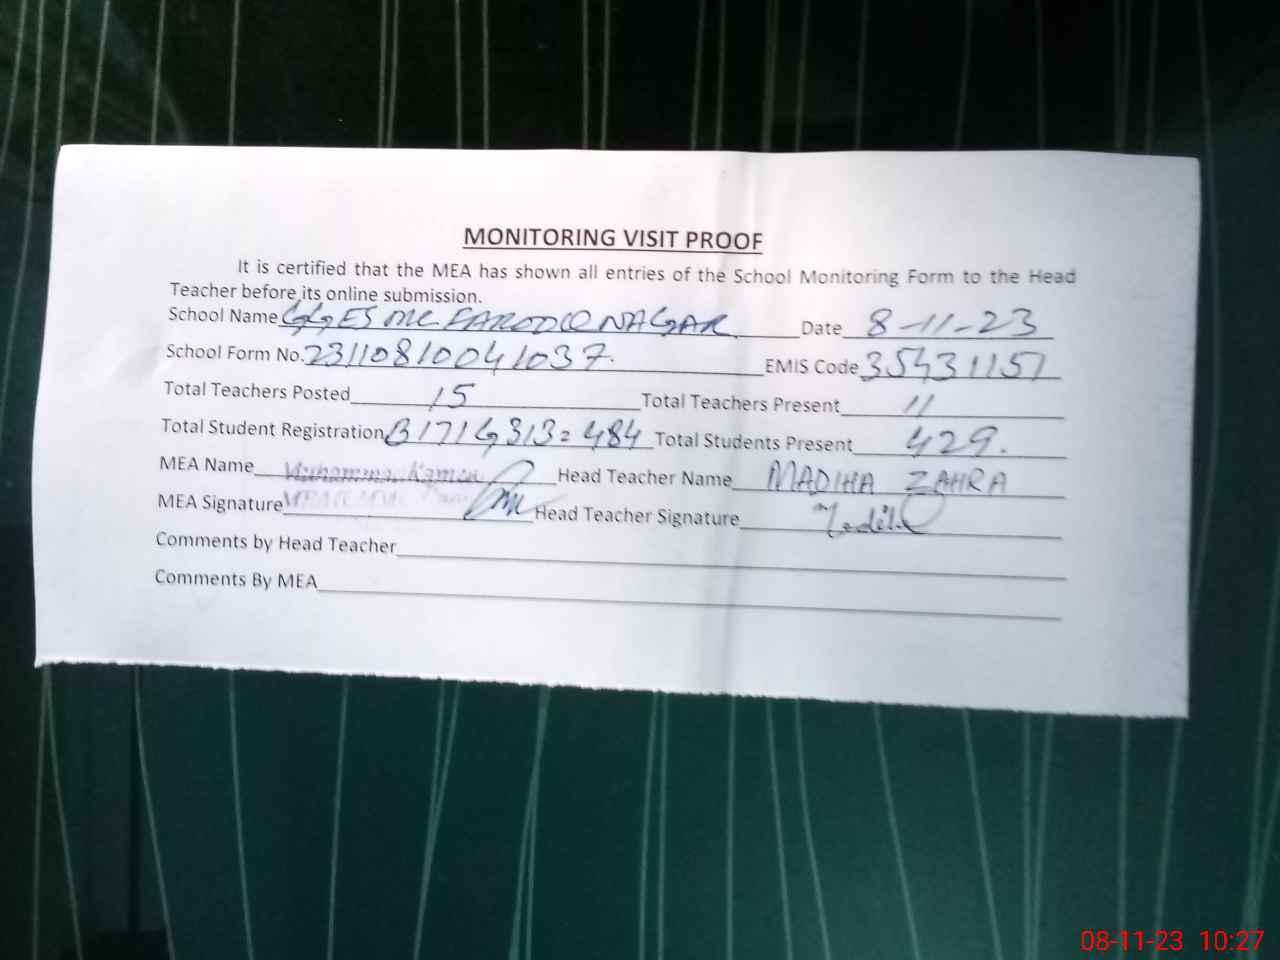 MONITORING VISIT PROOF
It is certified that the MEA has shown all entries of the School Monitoring Form to the Head
Teacher before its online submission.
School Name GGES MC FAROOQ NAGAR Date 8-11-23
School Form No. 23110810041037. EMIS Code 35431151
Total Teachers Posted 15 Total Teachers Present 11
Total Student Registration B 171 G 313 = 484 Total Students Present 429.
MEA Name Head Teacher Name MADIHA ZAHRA
MEA Signature Head Teacher Signature Madiha
Comments by Head Teacher
Comments By MEA
08-11-23 10:27